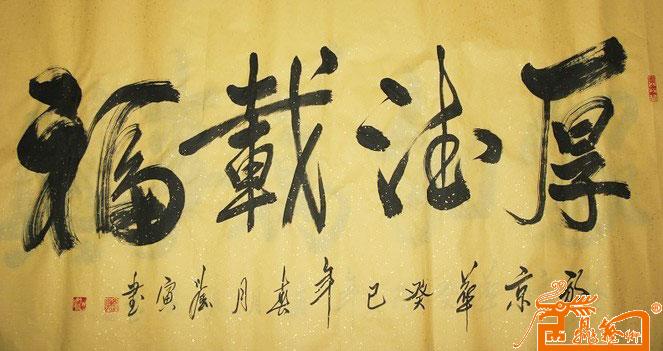 厚德載福
京華癸巳年春月寅書